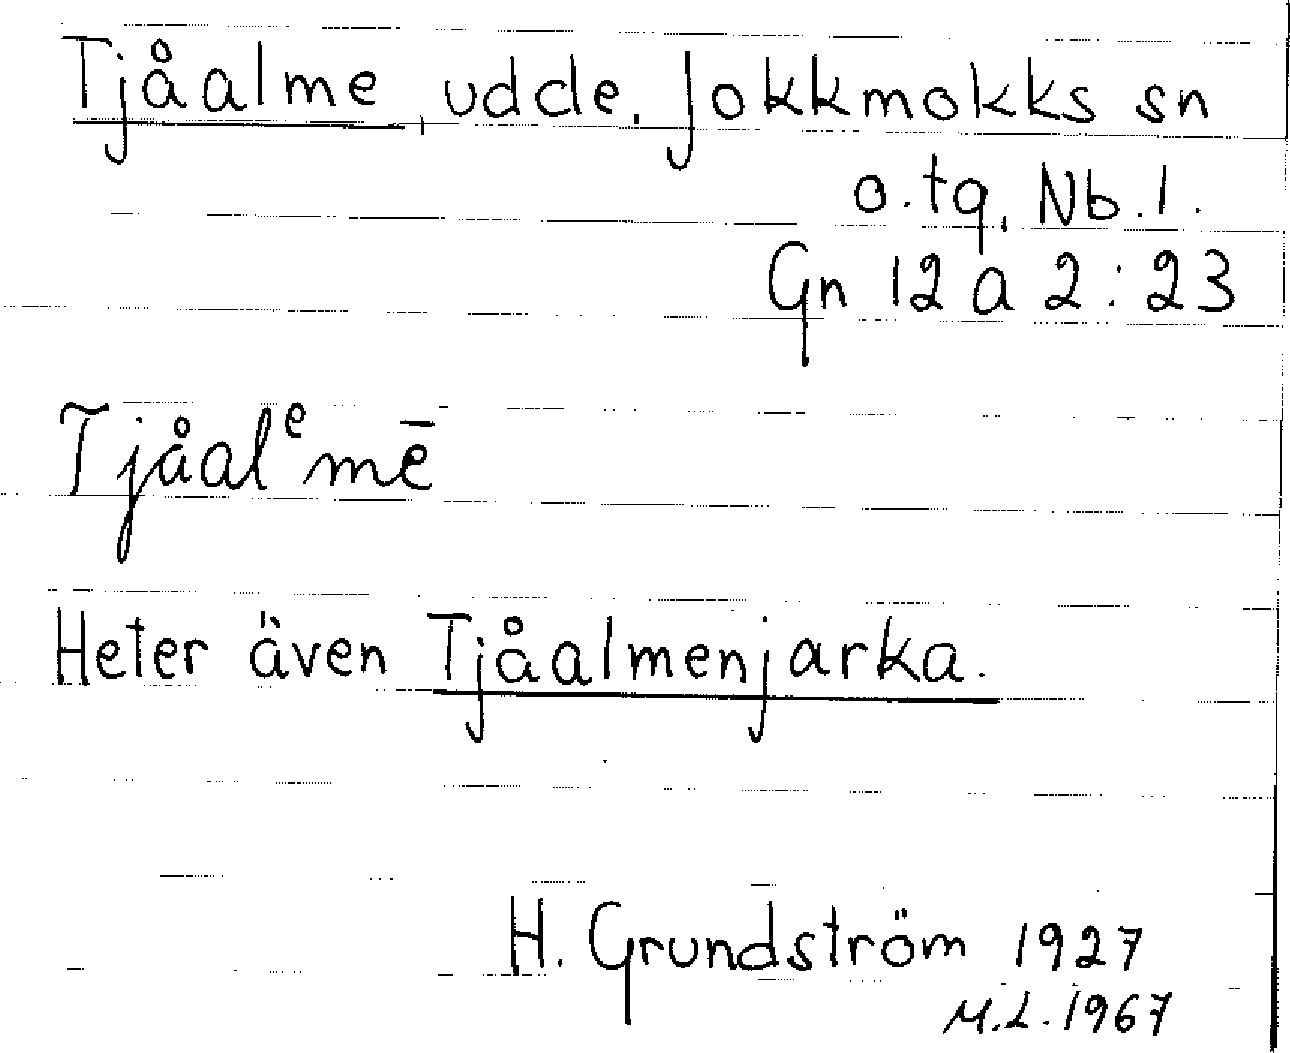 Tjåalme, udde. Jokkmokks sn
o. tg, Nb. l.
Gn 12 a 2 : 23
Tjåalᵉmē
Heter även Tjåalmenjarka.
H. Grundström 1927
M.L. 1967